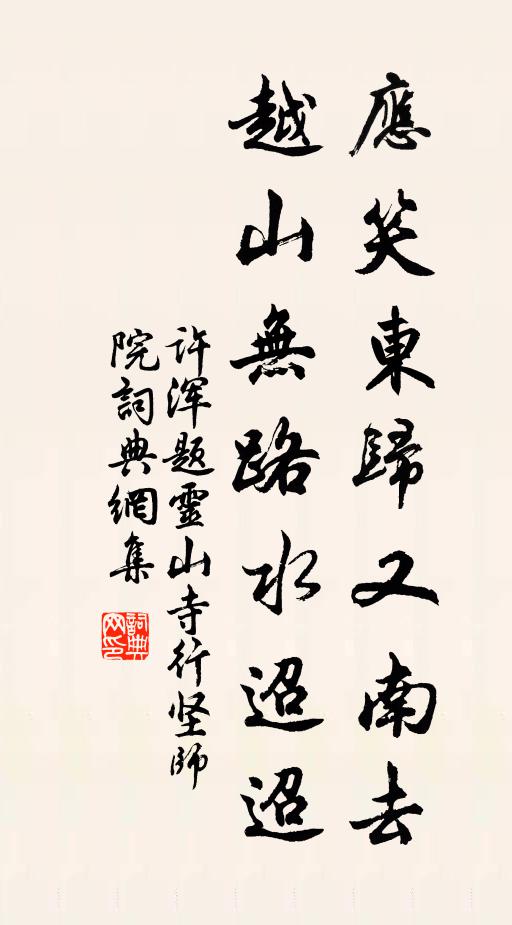 應笑東歸又南去
越山無路水迢迢
许浑题靈山寺行坚師
院詞典網集
詞典网印